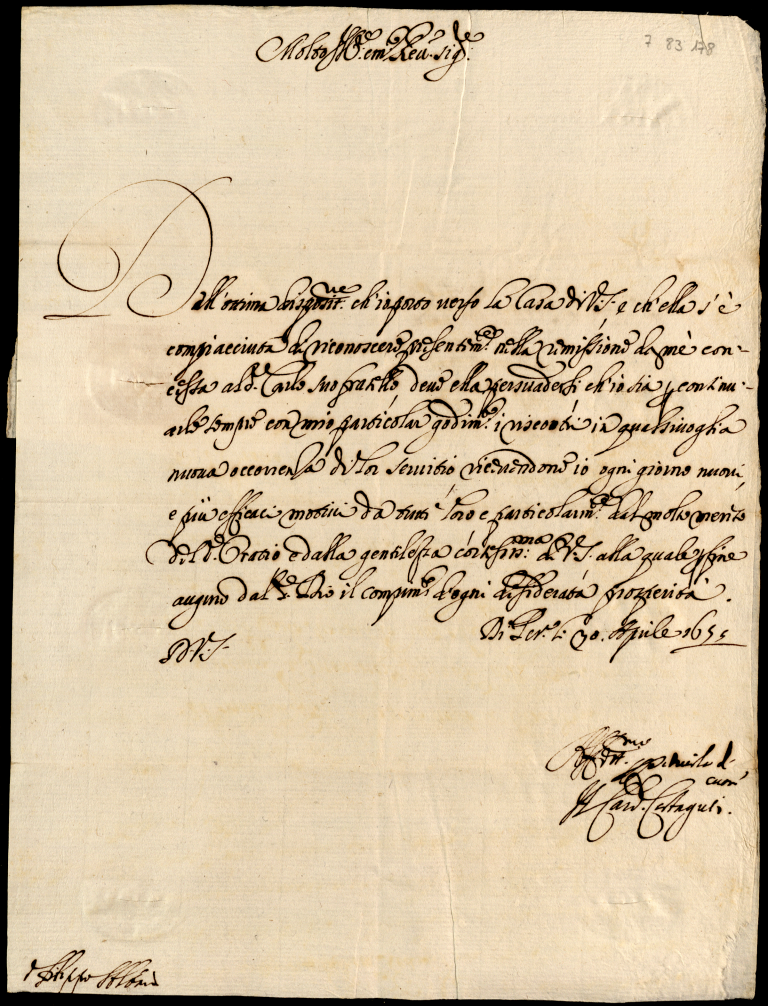 7 83 178
Molto Ill.re e m.to Rev. sig.re
Dall'ottima disposit.ne ch'io porto verso la Casa di V.S. e ch'ella s'è
compiacciuta di riconoscere presentem.te nella remissione da mè con-
cessa al S.r Carlo suo fratello deve ella persuadersi ch'io sia p continu-
arle sempre con mio particolar godim.to i riscontri in qualsivoglia
nuova occorrenza di lor servitio ricevendone io ogni giorno nuovi,
e più efficaci motivi da tutti loro e particolarm.te dal molto merito
del S.r Oratio e dalla gentilezza cortesiss.ma di V.S. alla quale p fine
auguro dal S.r Dio il compim.to d'ogni desiderata prosperità.
Di Ferr.a li 30. Aprile 1655
D V.S.
Aff.mo
Il Card. Costaguti.
S. Filippo